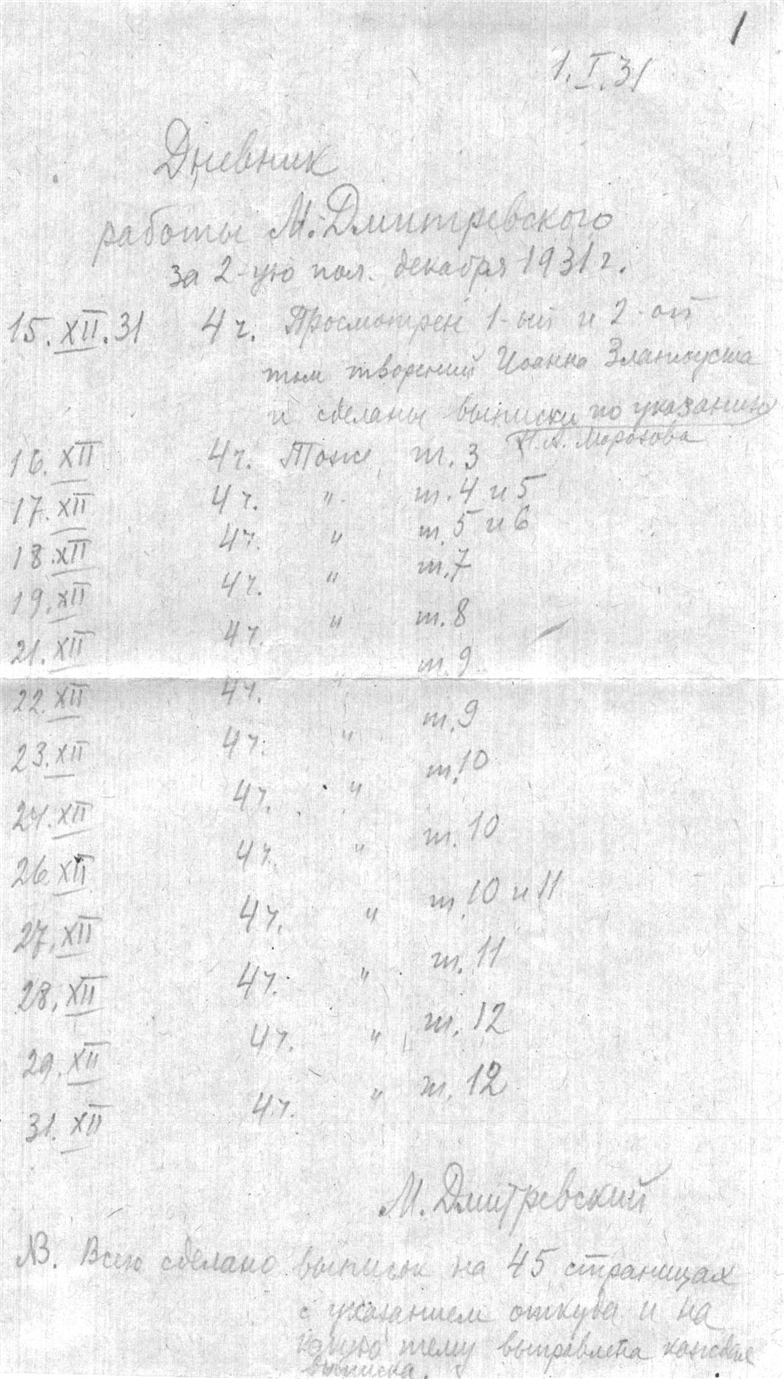 1
1.I.31
Дневник
работы М. Дмитревского
за 2-ую пол. декабря 1931 г.
15.XII.31 4 ч. Просмотрен 1-ый и 2-ой
том творений Иоанна Златоуста
и сделаны выписки по указанию
Н.А. Морозова
16.XII 4 ч. Тоже т. 3
17.XII 4 ч. " т. 4 и 5
18.XII 4 ч. " т. 5 и 6
19.XII 4 ч. " т. 7
21.XII 4 ч. " т. 8
22.XII 4 ч. " т. 9
23.XII 4 ч. " т. 9
24.XII 4 ч. " т. 10
26.XII 4 ч. " т. 10
27.XII 4 ч. " т. 10 и 11
28.XII 4 ч. " т. 11
29.XII 4 ч. " т. 12
31.XII 4 ч. " т. 12
М. Дмитревский
NB. Всего сделано выписок на 45 страницах
с указанием откуда и на
какую тему каждая
выписка.